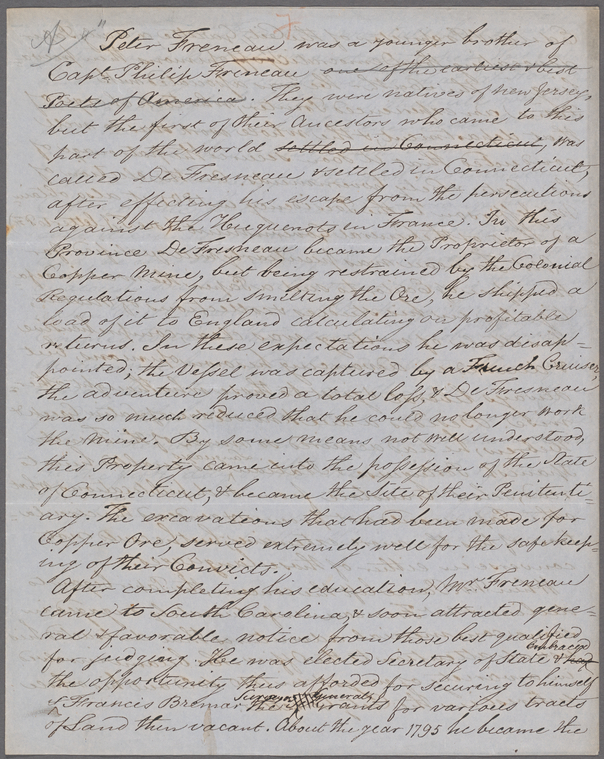 Peter Freneau was a younger brother of
Capt. Philip Freneau one of the earliest & best
Poets of America. They were natives of New Jersey,
but the first of their Ancestors who came to this
part of the world settled in Connecticut, was
called De Fresneau & settled in Connecticut,
after effecting his escape from the persecutions
against the Huguenots in France. In this
Province De Fresneau became the Proprietor of a
Copper Mine, but being restrained by the Colonial
Regulations from smelting the Ore, he shipped a
load of it to England calculating on profitable
returns. In these expectations he was disap=
pointed; the Vessel was captured by a French Cruiser,
the adventure proved a total loss, & De Fresneau
was so much reduced that he could no longer work
the Mine. By some means not well understood,
this Property came into the possession of the State
of Connecticut, & became the Site of their Penitenti=
ary. The excavations that had been made for
Copper Ore, served extremely well for the safe keep=
ing of their Convicts.
After completing his education, Mr Freneau
came to South Carolina, & soon attracted gene=
ral & favorable notice from those best qualified
for judging. He was elected Secretary of State & had embraced
the opportunity thus afforded for securing to himself
& Francis Bremar Surveyor General, grants for various tracts
of Land then vacant. About the year 1795 he became the